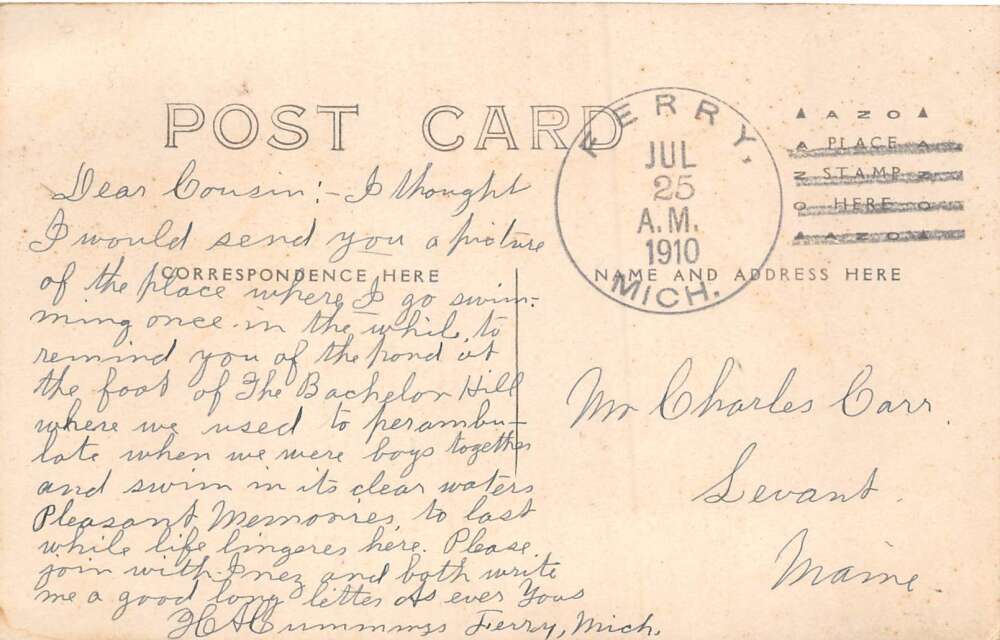 POST CARD
FERRY,
JUL
25
A.M.
1910
MICH.
AZO
PLACE
STAMP
HERE
AZO
CORRESPONDENCE HERE
NAME AND ADDRESS HERE
Dear Cousin:- I thought
I would send you a picture
of the place where I go swim-
ming once in the while, to
remind you of the pond at
the foot of The Bachelor Hill
where we used to perambu-
late when we were boys together
and swim in its clear waters
Pleasant Memories, to last
while life lingeres here. Please
join with Inez and both write
me a good long letter As ever Yous
H A Cummings Ferry, Mich.
Mr Charles Carr
Levant.
Maine